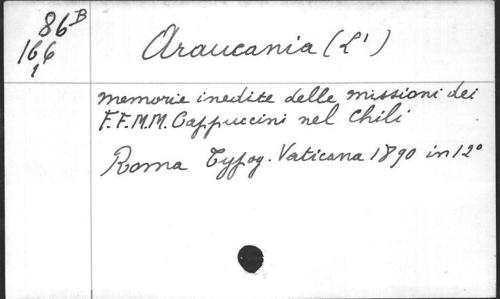 86B
166
1
Araucania (L')
memorie inedite delle missioni dei
F.F.M.M. Cappuccini nel Chili
Roma Typog. Vaticana 1890 in 12°